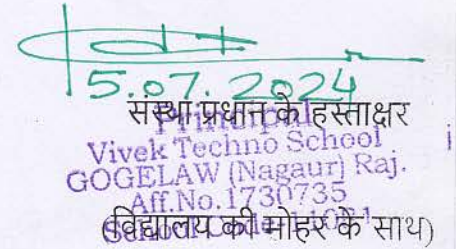 5.07.2024
संस्था प्रधान के हस्ताक्षर
Principal
Vivek Techno School
GOGELAW (Nagaur) Raj.
Aff.No.1730735
(विद्यालय की मोहर के साथ)